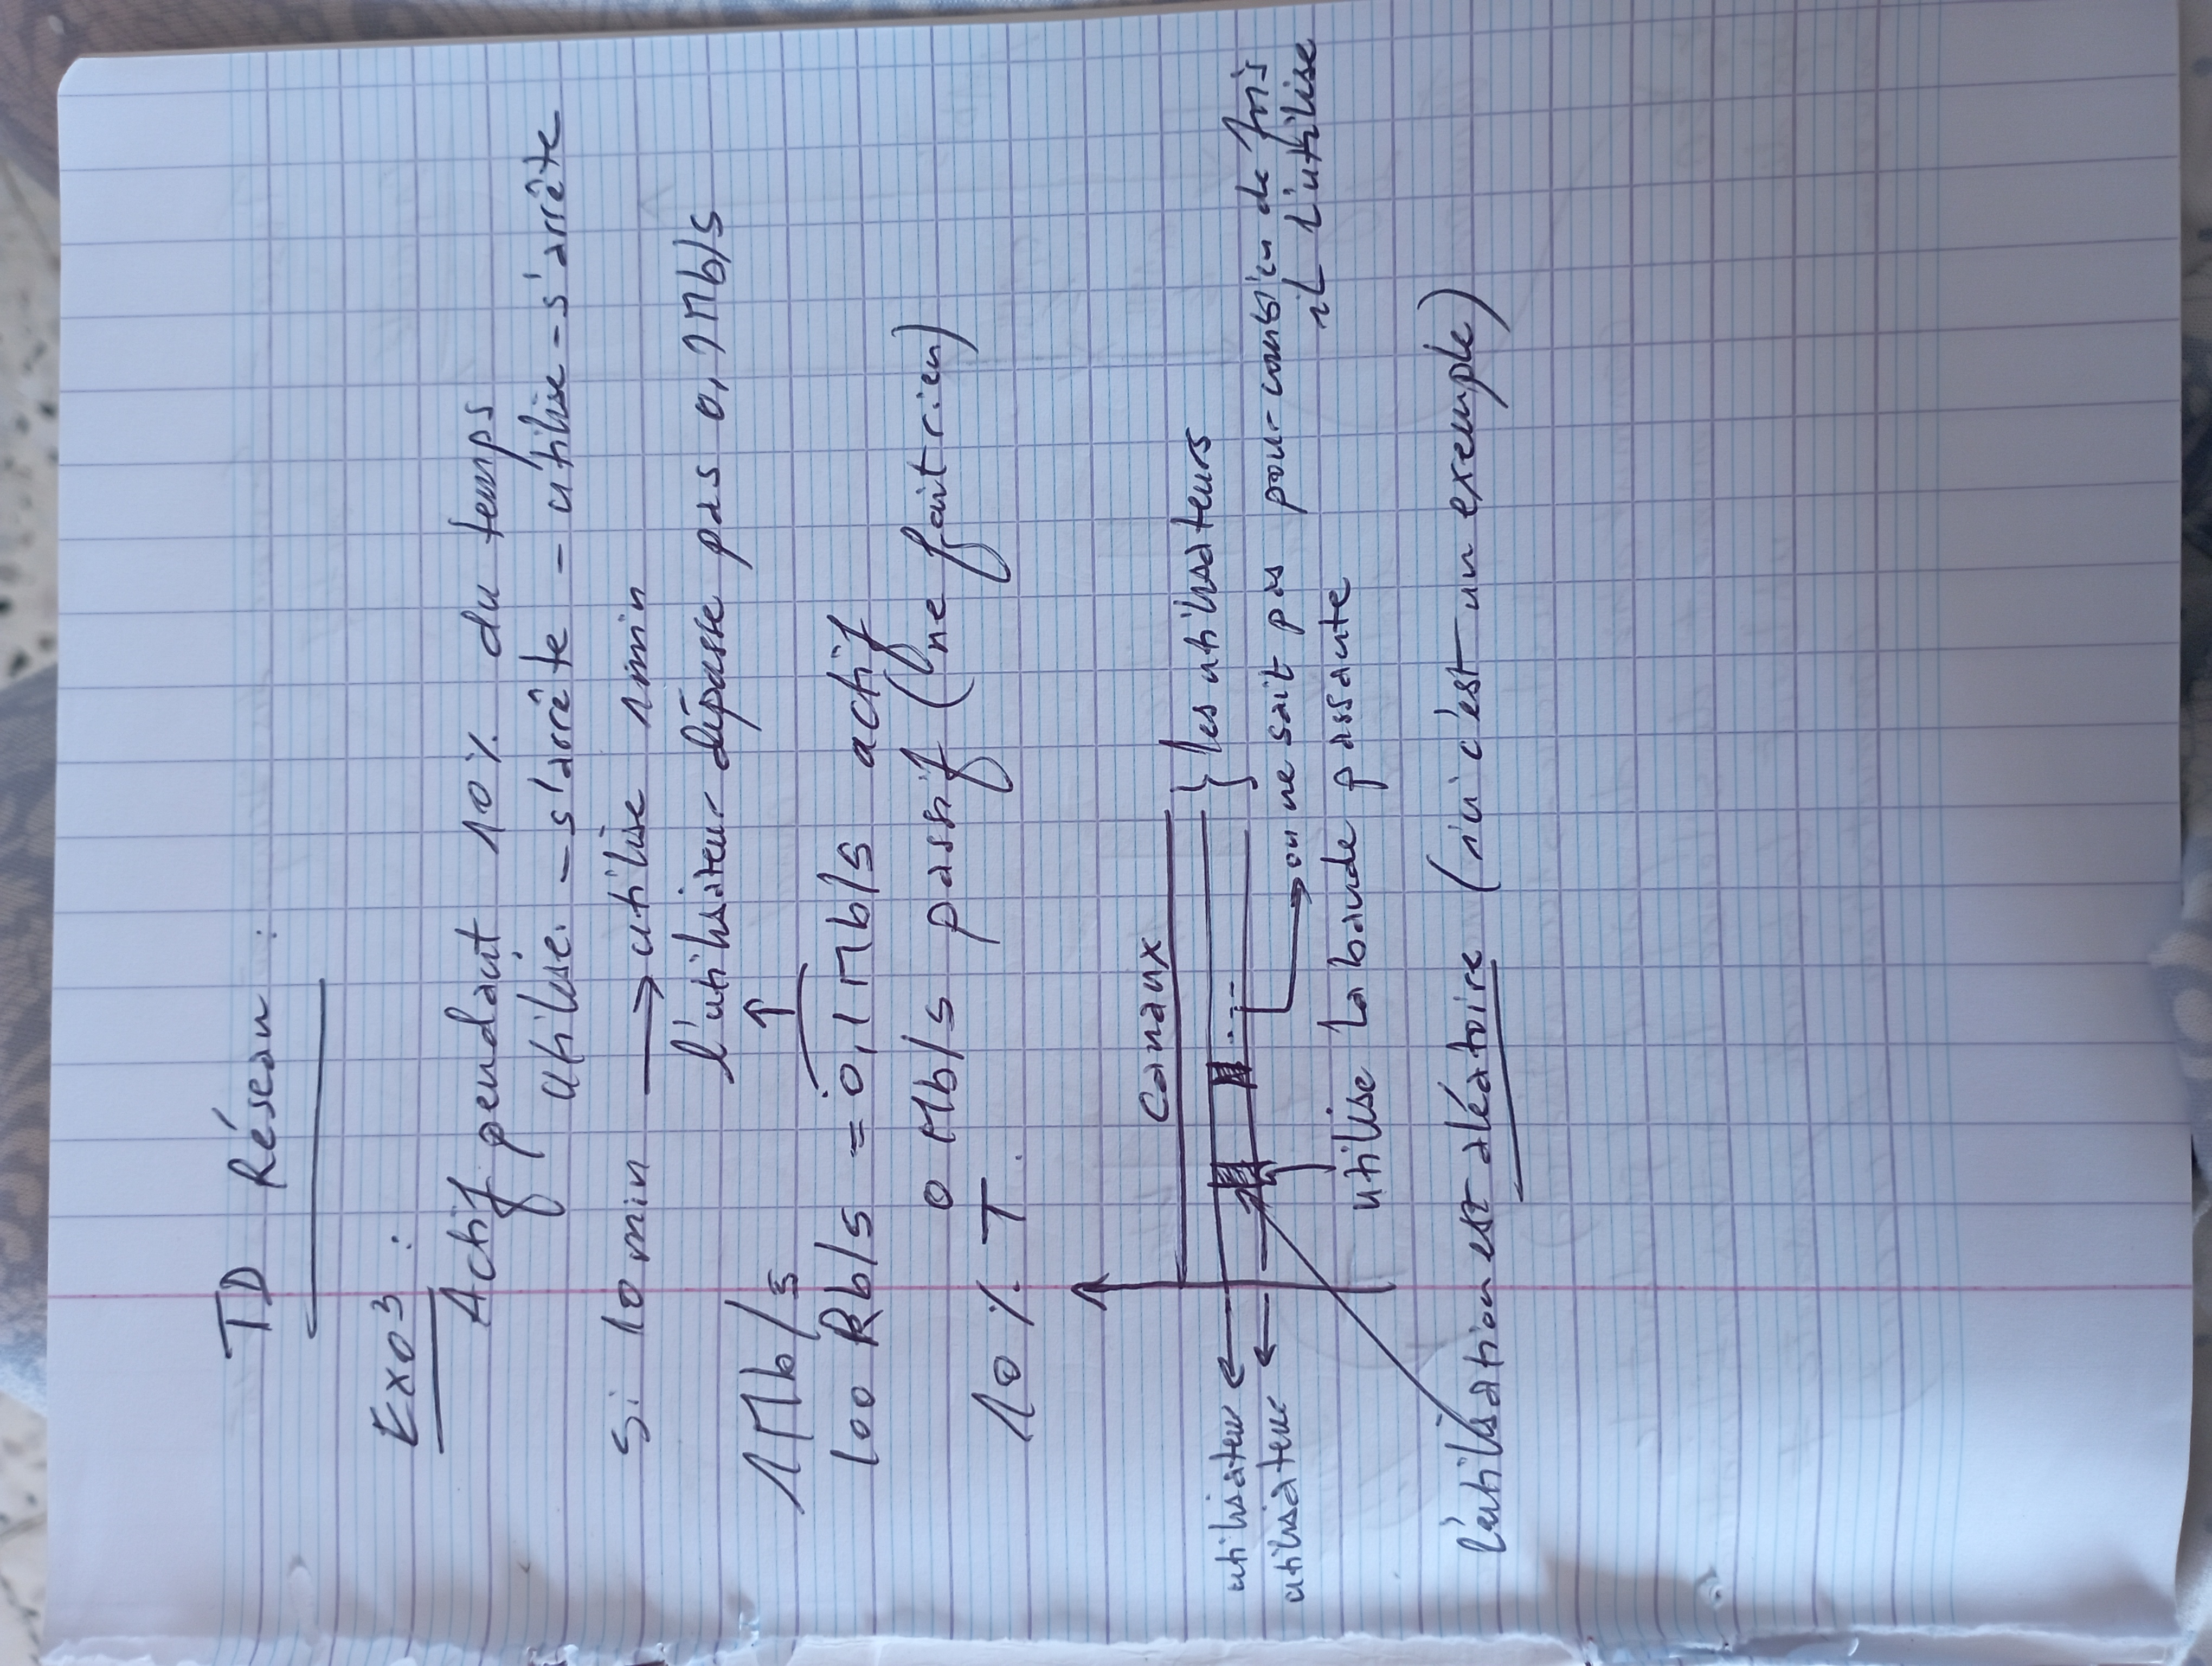 TD Réseau :
Exo3 :
Actif pendant 10% du temps
utilise. - s'arrête - utilise - s'arrête
Si 10 min → utilise 1 min
l'utilisateur dépasse pas 0,1Mb/s
↑
1Mb/s
100 Kb/s = 0,1Mb/s actif
0 Mb/s passif (ne fait rien)
10 % T.
canaux
} les utilisateurs
utilisateur ←
utilisateur ←
→ on ne sait pas pour combien de fois
il l'utilise
utilise la bande passante
l'utilisation est aléatoire (ici c'est un exemple)